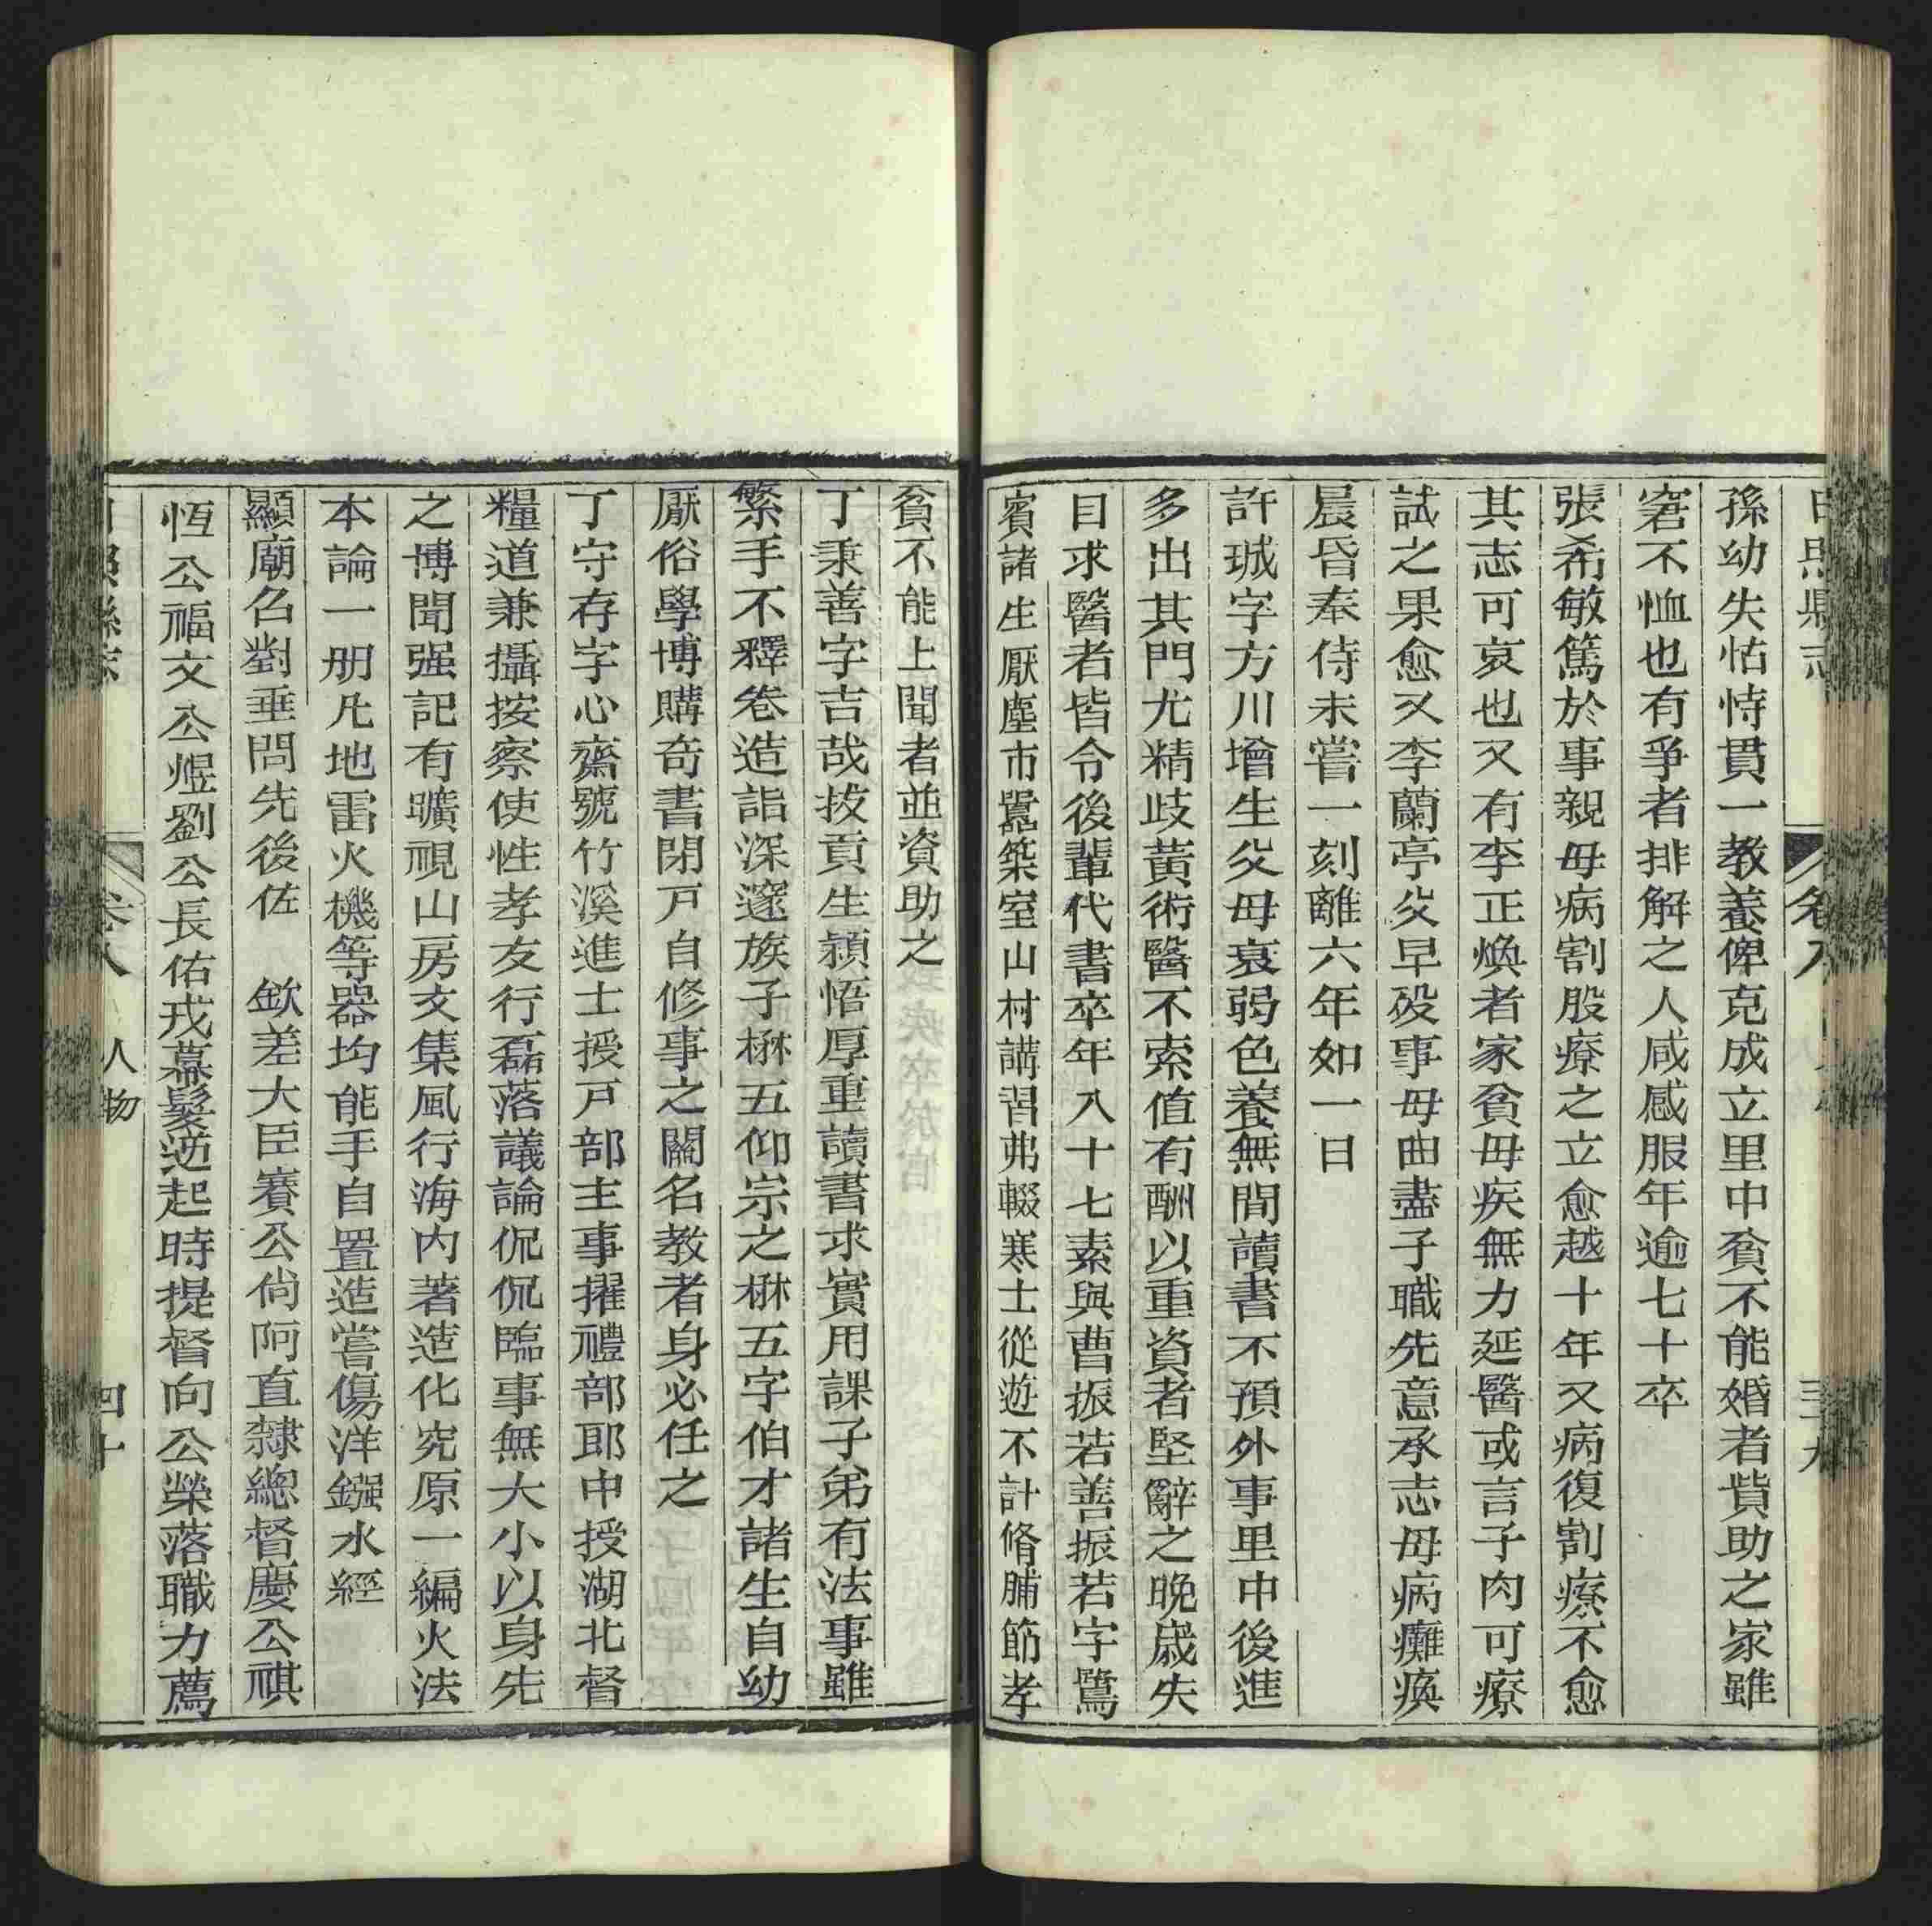 日照縣志 卷八 三九
孫幼失怙恃貫一教養俾克成立里中貧不能婚者貲助之家雖
窘不恤也有爭者排解之人咸感服年逾七十卒
張希敏篤於事親母病割股療之立愈越十年又病復割療不愈
其志可哀也又有李正煥者家貧母疾無力延醫或言子肉可療
試之果愈又李蘭亭父早歿事母曲盡子職先意承志母病癱瘓
晨昏奉侍未嘗一刻離六年如一日
許珹字方川增生父母衰弱色養無間讀書不預外事里中後進
多出其門尤精歧黃術醫不索值有酬以重資者堅辭之晚歲失
目求醫者皆令後輩代書卒年八十七素與曹振若善振若字鷺
賓諸生厭塵市囂築室山村講習弗輟寒士從遊不計脩脯節孝
貧不能上聞者並資助之
丁秉善字吉哉拔貢生潁悟厚重讀書求實用課子弟有法事雖
繁手不釋卷造詣深邃族子楙五仰宗之楙五字伯才諸生自幼
厭俗學博購奇書閉戸自修事之關名教者身必任之
丁守存字心齋號竹溪進士授戸部主事擢禮部郎中授湖北督
糧道兼攝按察使性孝友行磊落議論侃侃臨事無大小以身先
之博聞强記有曠視山房文集風行海内著造化究原一編火法
本論一册凡地雷火機等器均能手自置造嘗傷洋鏹水經
顯廟召對垂問先後佐 欽差大臣賽公尙阿直隸總督慶公祺
恆公福文公煜劉公長佑戎幕髮逆起時提督向公榮落職力薦
日照縣志 卷八 人物 四十